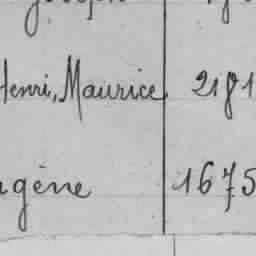 Joseph
Henri, Maurice 2181
gène 1675